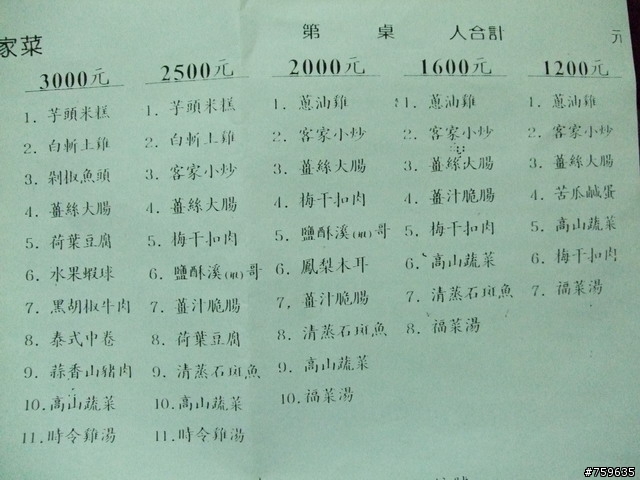 家菜
第 桌 人合計 元
3000元
1. 芋頭米糕
2. 白斬土雞
3. 剁椒魚頭
4. 薑絲大腸
5. 荷葉豆腐
6. 水果蝦球
7. 黑胡椒牛肉
8. 泰式中卷
9. 蒜香山豬肉
10. 高山蔬菜
11. 時令雞湯
2500元
1. 芋頭米糕
2. 白斬土雞
3. 客家小炒
4. 薑絲大腸
5. 梅干扣肉
6. 鹽酥溪(蝦)哥
7. 薑汁脆腸
8. 荷葉豆腐
9. 清蒸石斑魚
10. 高山蔬菜
11. 時令雞湯
2000元
1. 蔥油雞
2. 客家小炒
3. 薑絲大腸
4. 梅干扣肉
5. 鹽酥溪(蝦)哥
6. 鳳梨木耳
7. 薑汁脆腸
8. 清蒸石斑魚
9. 高山蔬菜
10. 福菜湯
1600元
1. 蔥油雞
2. 客家小炒
3. 薑絲大腸
4. 薑汁脆腸
5. 梅干扣肉
6. 高山蔬菜
7. 清蒸石斑魚
8. 福菜湯
1200元
1. 蔥油雞
2. 客家小炒
3. 薑絲大腸
4. 苦瓜鹹蛋
5. 高山蔬菜
6. 梅干扣肉
7. 福菜湯
#759635